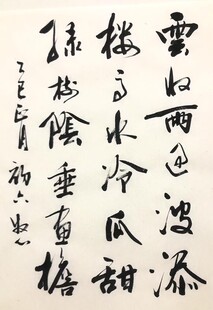 雲收雨過波添
楼高水冷瓜甜
緑樹陰垂畫檐
乙巳正月初六